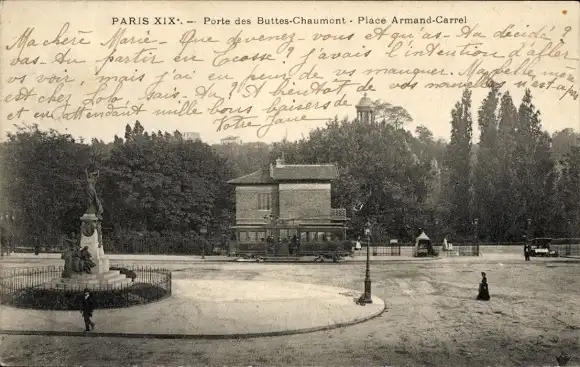 PARIS XIXe. — Porte des Buttes-Chaumont - Place Armand-Carrel
Ma chère Marie - Que devenez-vous et qu'as-tu décidé?
Vas-tu partir en Ecosse? j'avais l'intention d'aller
vs voir, mais j'ai eu peur de vs manquer. Ma mère
est chez Lola Sais-tu? A bientôt de vos nouvelles n'est-ce pas
et en attendant mille bons baisers de
votre Jane